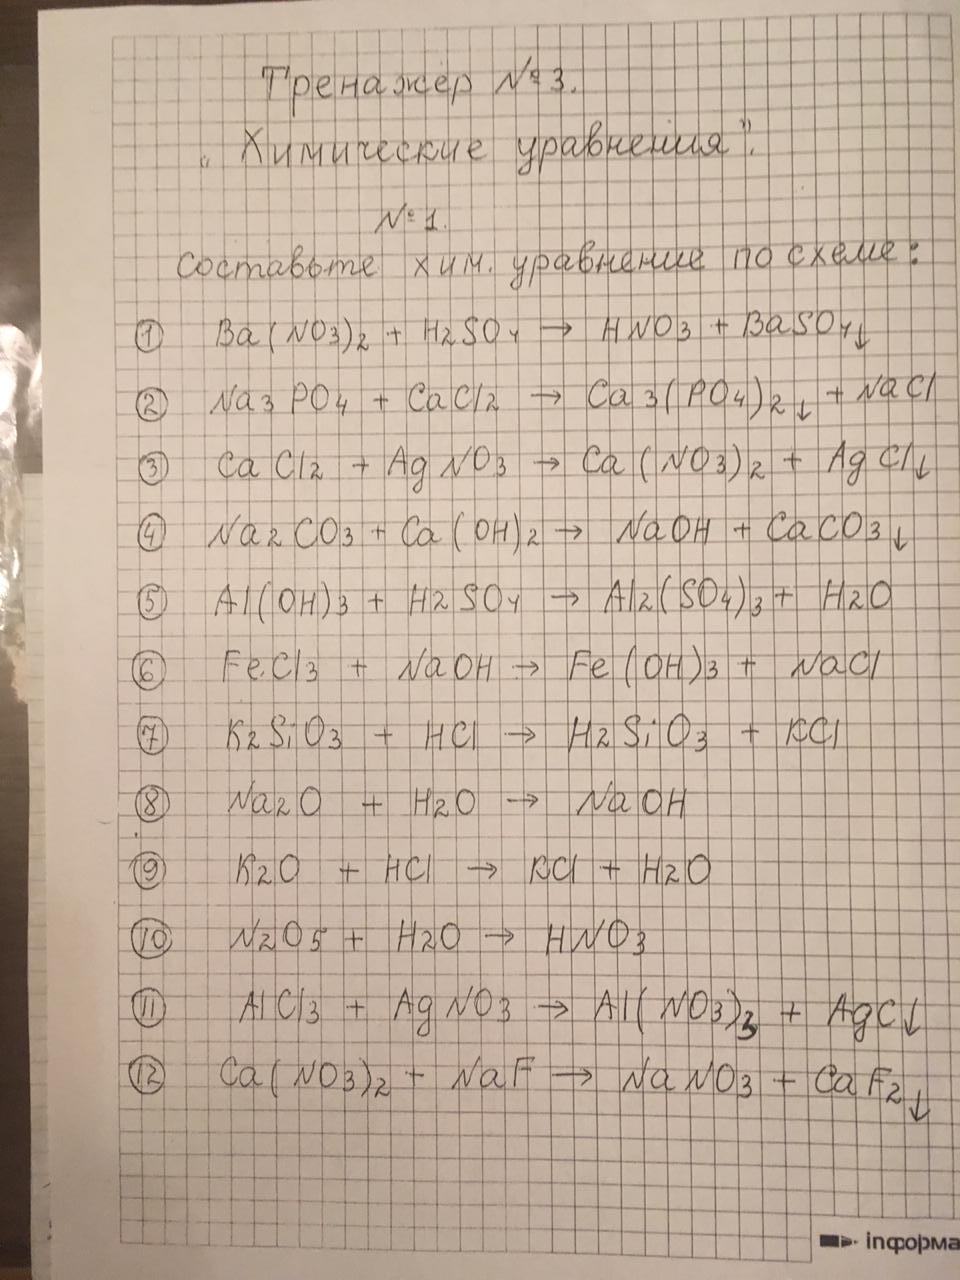 Тренажёр №3.
„Химические уравнения".
№1.
Составьте хим. уравнение по схеме:
① Ba(NO3)2 + H2SO4 → HNO3 + BaSO4↓
② Na3PO4 + CaCl2 → Ca3(PO4)2↓ + NaCl
③ CaCl2 + AgNO3 → Ca(NO3)2 + AgCl↓
④ Na2CO3 + Ca(OH)2 → NaOH + CaCO3↓
⑤ Al(OH)3 + H2SO4 → Al2(SO4)3 + H2O
⑥ FeCl3 + NaOH → Fe(OH)3 + NaCl
⑦ K2SiO3 + HCl → H2SiO3 + KCl
⑧ Na2O + H2O → NaOH
⑨ K2O + HCl → KCl + H2O
⑩ N2O5 + H2O → HNO3
⑪ AlCl3 + AgNO3 → Al(NO3)3 + AgCl↓
⑫ Ca(NO3)2 + NaF → NaNO3 + CaF2↓
інформа